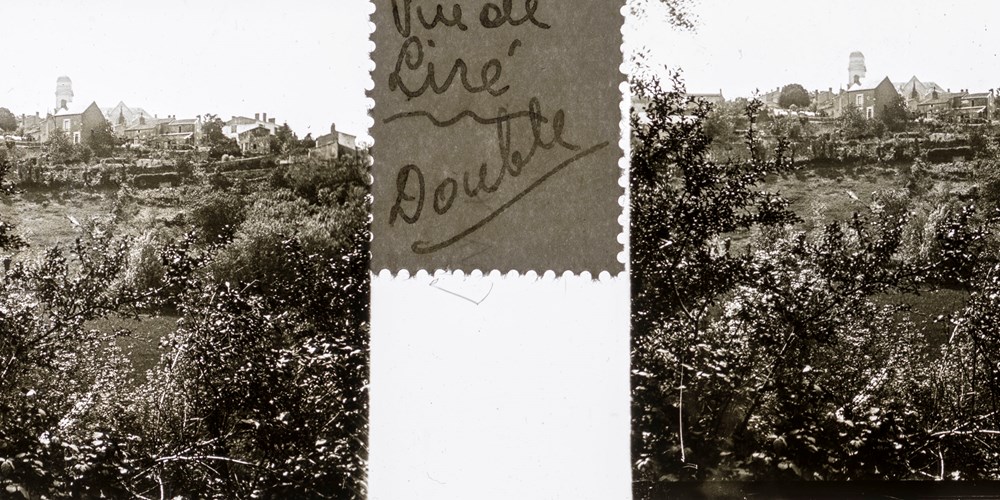 Vue de
Liré
Double